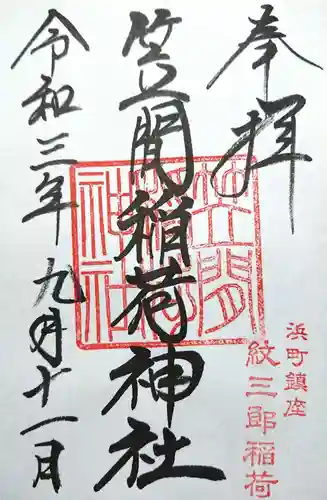 奉拝
浜町鎮座
紋三郎稲荷
笠間稲荷神社
笠間
稲荷
神社
令和三年九月十一日